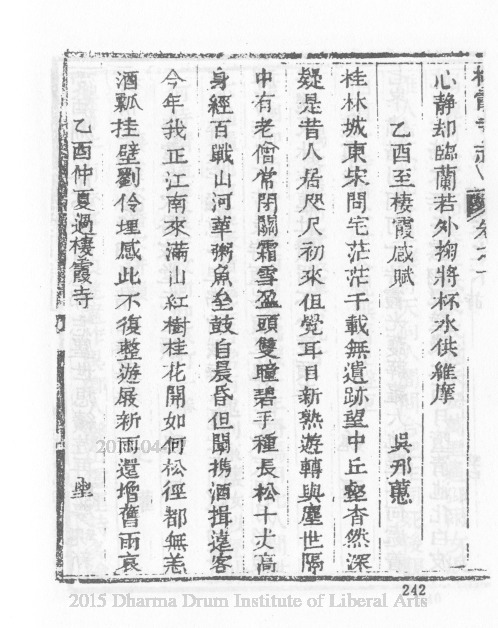 棲霞寺志
心靜却臨蘭若外掬將杯水供維摩
乙酉至棲霞感賦
吳那蕙
桂林城東宋問宅茫茫千載無遺跡望中丘壑杳然深
疑是昔人居咫尺初來但覺耳目新熟遊轉與塵世隔
中有老僧常閉關霜雪盈頭雙瞳碧手種長松十丈高
身經百戰山河革粥魚坐鼓自晨昏但聞携酒揖遠客
今年我正江南來滿山紅樹桂花開如何松徑都無恙
酒瓢挂壁劉伶埋感此不復整遊屐新雨還增舊雨哀
乙酉仲夏過棲霞寺
242
2015 Dharma Drum Institute of Liberal Arts